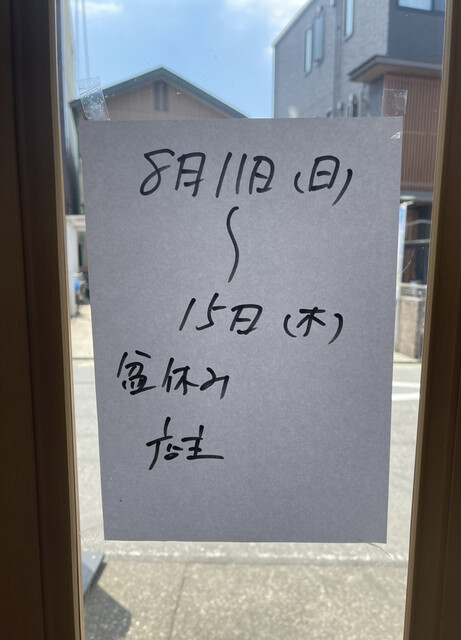 8月11日(日)
〜
15日(木)
盆休み
店主